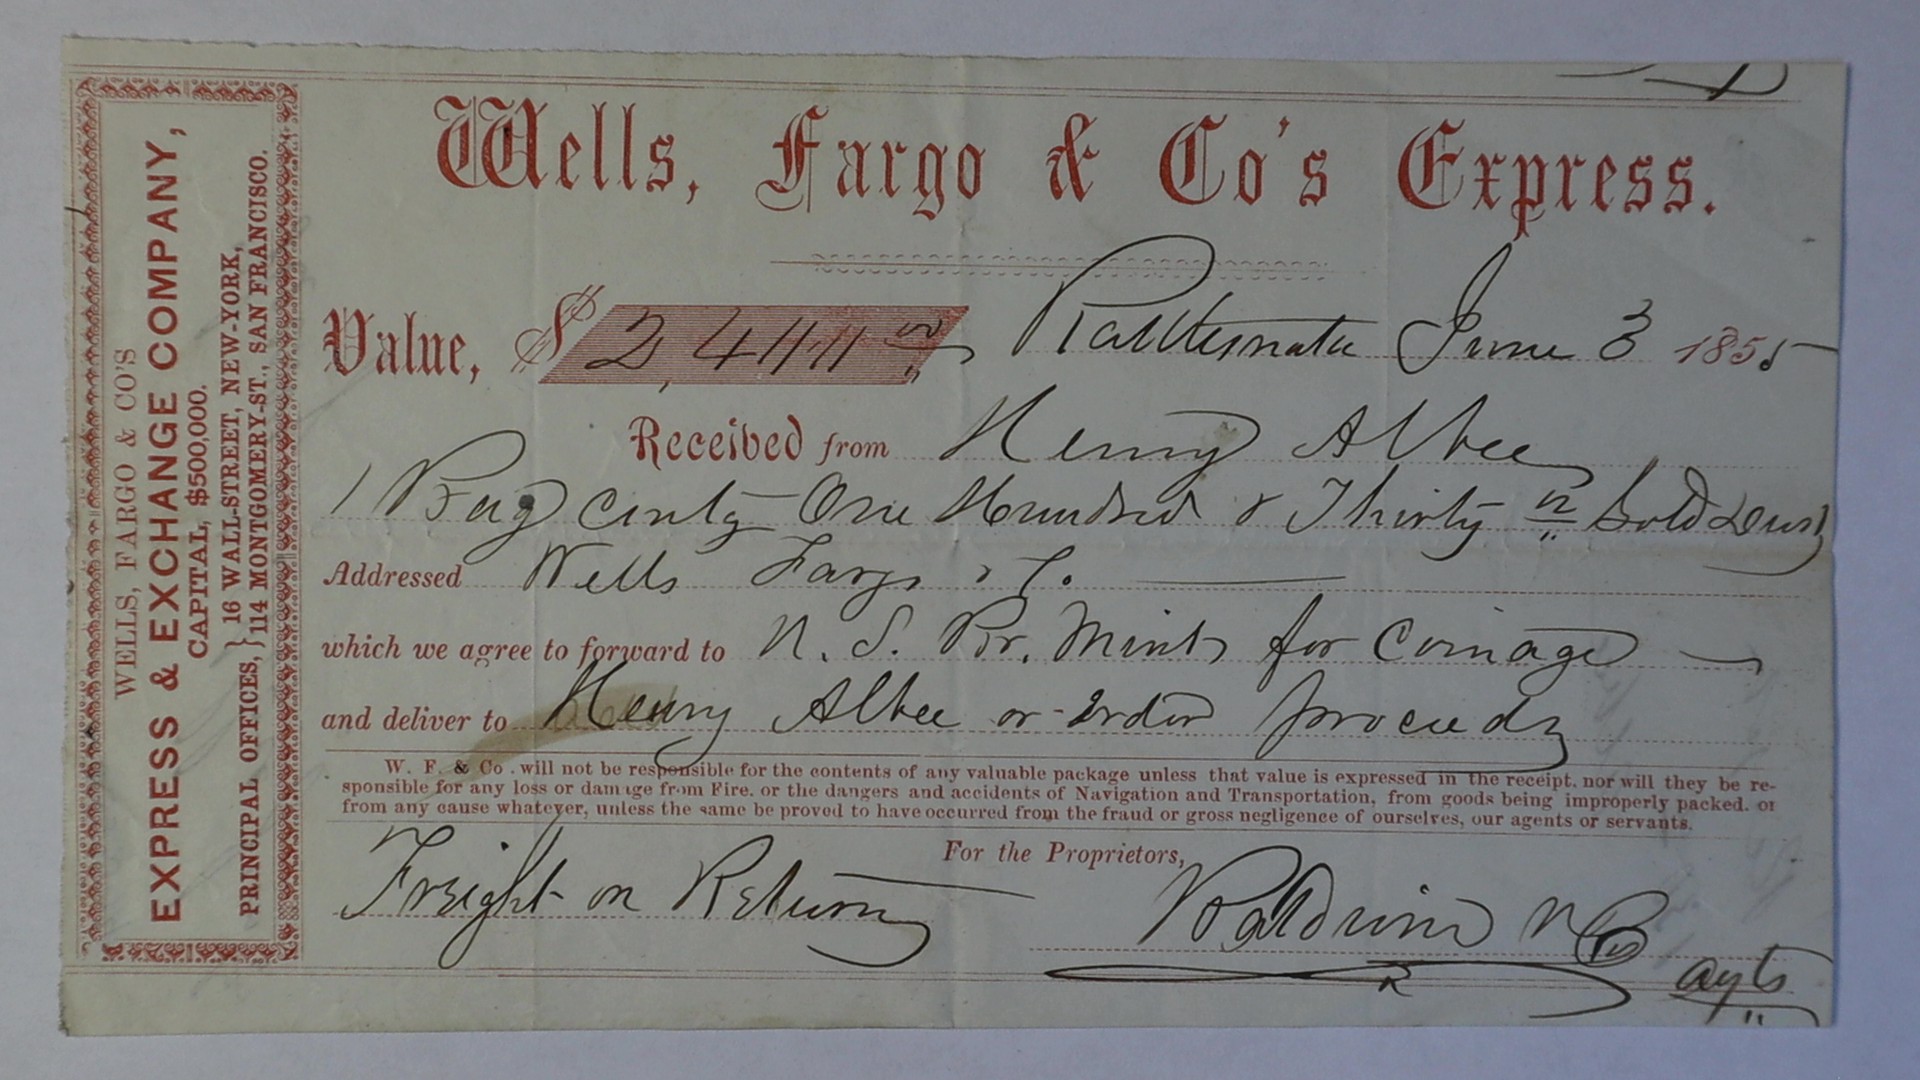 WELLS, FARGO & CO'S
EXPRESS & EXCHANGE COMPANY,
CAPITAL, $500,000.
PRINCIPAL OFFICES, } 16 WALL-STREET, NEW-YORK,
114 MONTGOMERY-ST., SAN FRANCISCO.
Wells, Fargo & Co's Express.
Value, $ 2,411.11 June 3 1855
Received from Henry Albee
1 Bag One Hundred & Thirty Gold Dust
Addressed Wells Fargo & Co.
which we agree to forward to Mint for Coinage
and deliver to Henry Albee or order proceeds
W. F. & Co. will not be responsible for the contents of any valuable package unless that value is expressed in the receipt, nor will they be re-
sponsible for any loss or damage from Fire, or the dangers and accidents of Navigation and Transportation, from goods being improperly packed, or
from any cause whatever, unless the same be proved to have occurred from the fraud or gross negligence of ourselves, our agents or servants.
For the Proprietors,
Freight on Return
Baldwin & Co
agts